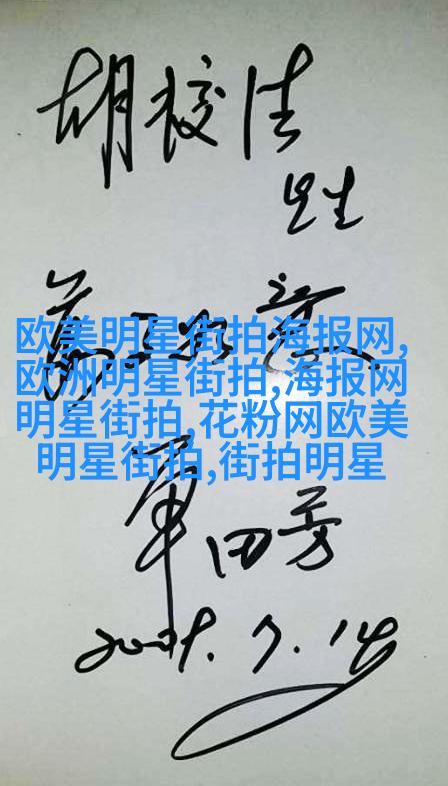 胡校法
先生
欧美明星街拍海报网,
欧洲明星街拍,海报网
明星街拍,花粉网欧美
明星街拍,街拍明星
单田芳
7.14